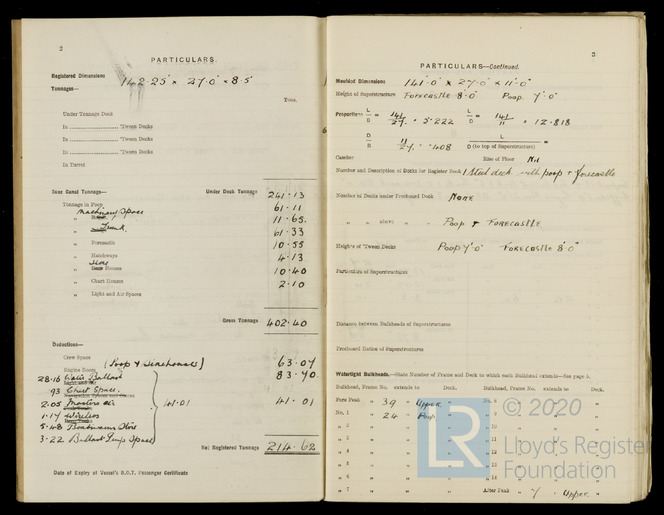 2
PARTICULARS.
Registered Dimensions 142·25' × 27·0' × 8·5'
Tonnages—
Tons.
Under Tonnage Deck
In 'Tween Decks
In 'Tween Decks
In 'Tween Decks
In Turret
Suez Canal Tonnage— Under Deck Tonnage 241·13
Tonnage in Poop 61·11
" Machinery Space 11·65
" Trunk 61·33
" Forecastle 10·55
" Hatchways 4·13
" Side Houses 10·40
" Chart Houses 2·10
" Light and Air Spaces
Gross Tonnage 402·40
Deductions—
Crew Space (Poop & Sidehouses) 63·07
Engine Room 83·70
28·16 Water Ballast
93 Chart Space
2·05 Masters etc 41·01 41·01
1·17 Wireless
5·48 Boatswains Store
3·22 Ballast Pump Space
Net Registered Tonnage 214·62
Date of Expiry of Vessel's B.O.T. Passenger Certificate
3
PARTICULARS—Continued.
Moulded Dimensions 141'·0" × 27'·0" × 11'·0"
Height of Superstructure Forecastle 8'·0" Poop 7'·0"
Proportions L/B = 141/27 = 5·222 L/D = 141/11 = 12·818
D/B = 11/27 = ·408 L/D (to top of Superstructure) =
Camber Rise of Floor Nil
Number and Description of Decks for Register Book 1 Steel deck with poop & forecastle
Number of Decks under Freeboard Deck None
" " above " " Poop & Forecastle
Heights of 'Tween Decks Poop 7'·0" Forecastle 8'·0"
Particulars of Superstructures
Distance between Bulkheads of Superstructures
Freeboard Ratios of Superstructures
Watertight Bulkheads.—State Number of Frame and Deck to which each Bulkhead extends—See page 5.
Bulkhead, Frame No. extends to Deck. Bulkhead, Frame No. extends to Deck.
Fore Peak 39 Upper No. 8
No. 1 24 Poop " 9
" 2
" 3
" 4
" 5
" 6 " 14
" 7 After Peak " 7 " Upper "
LR © 2020
Lloyd's Register
Foundation